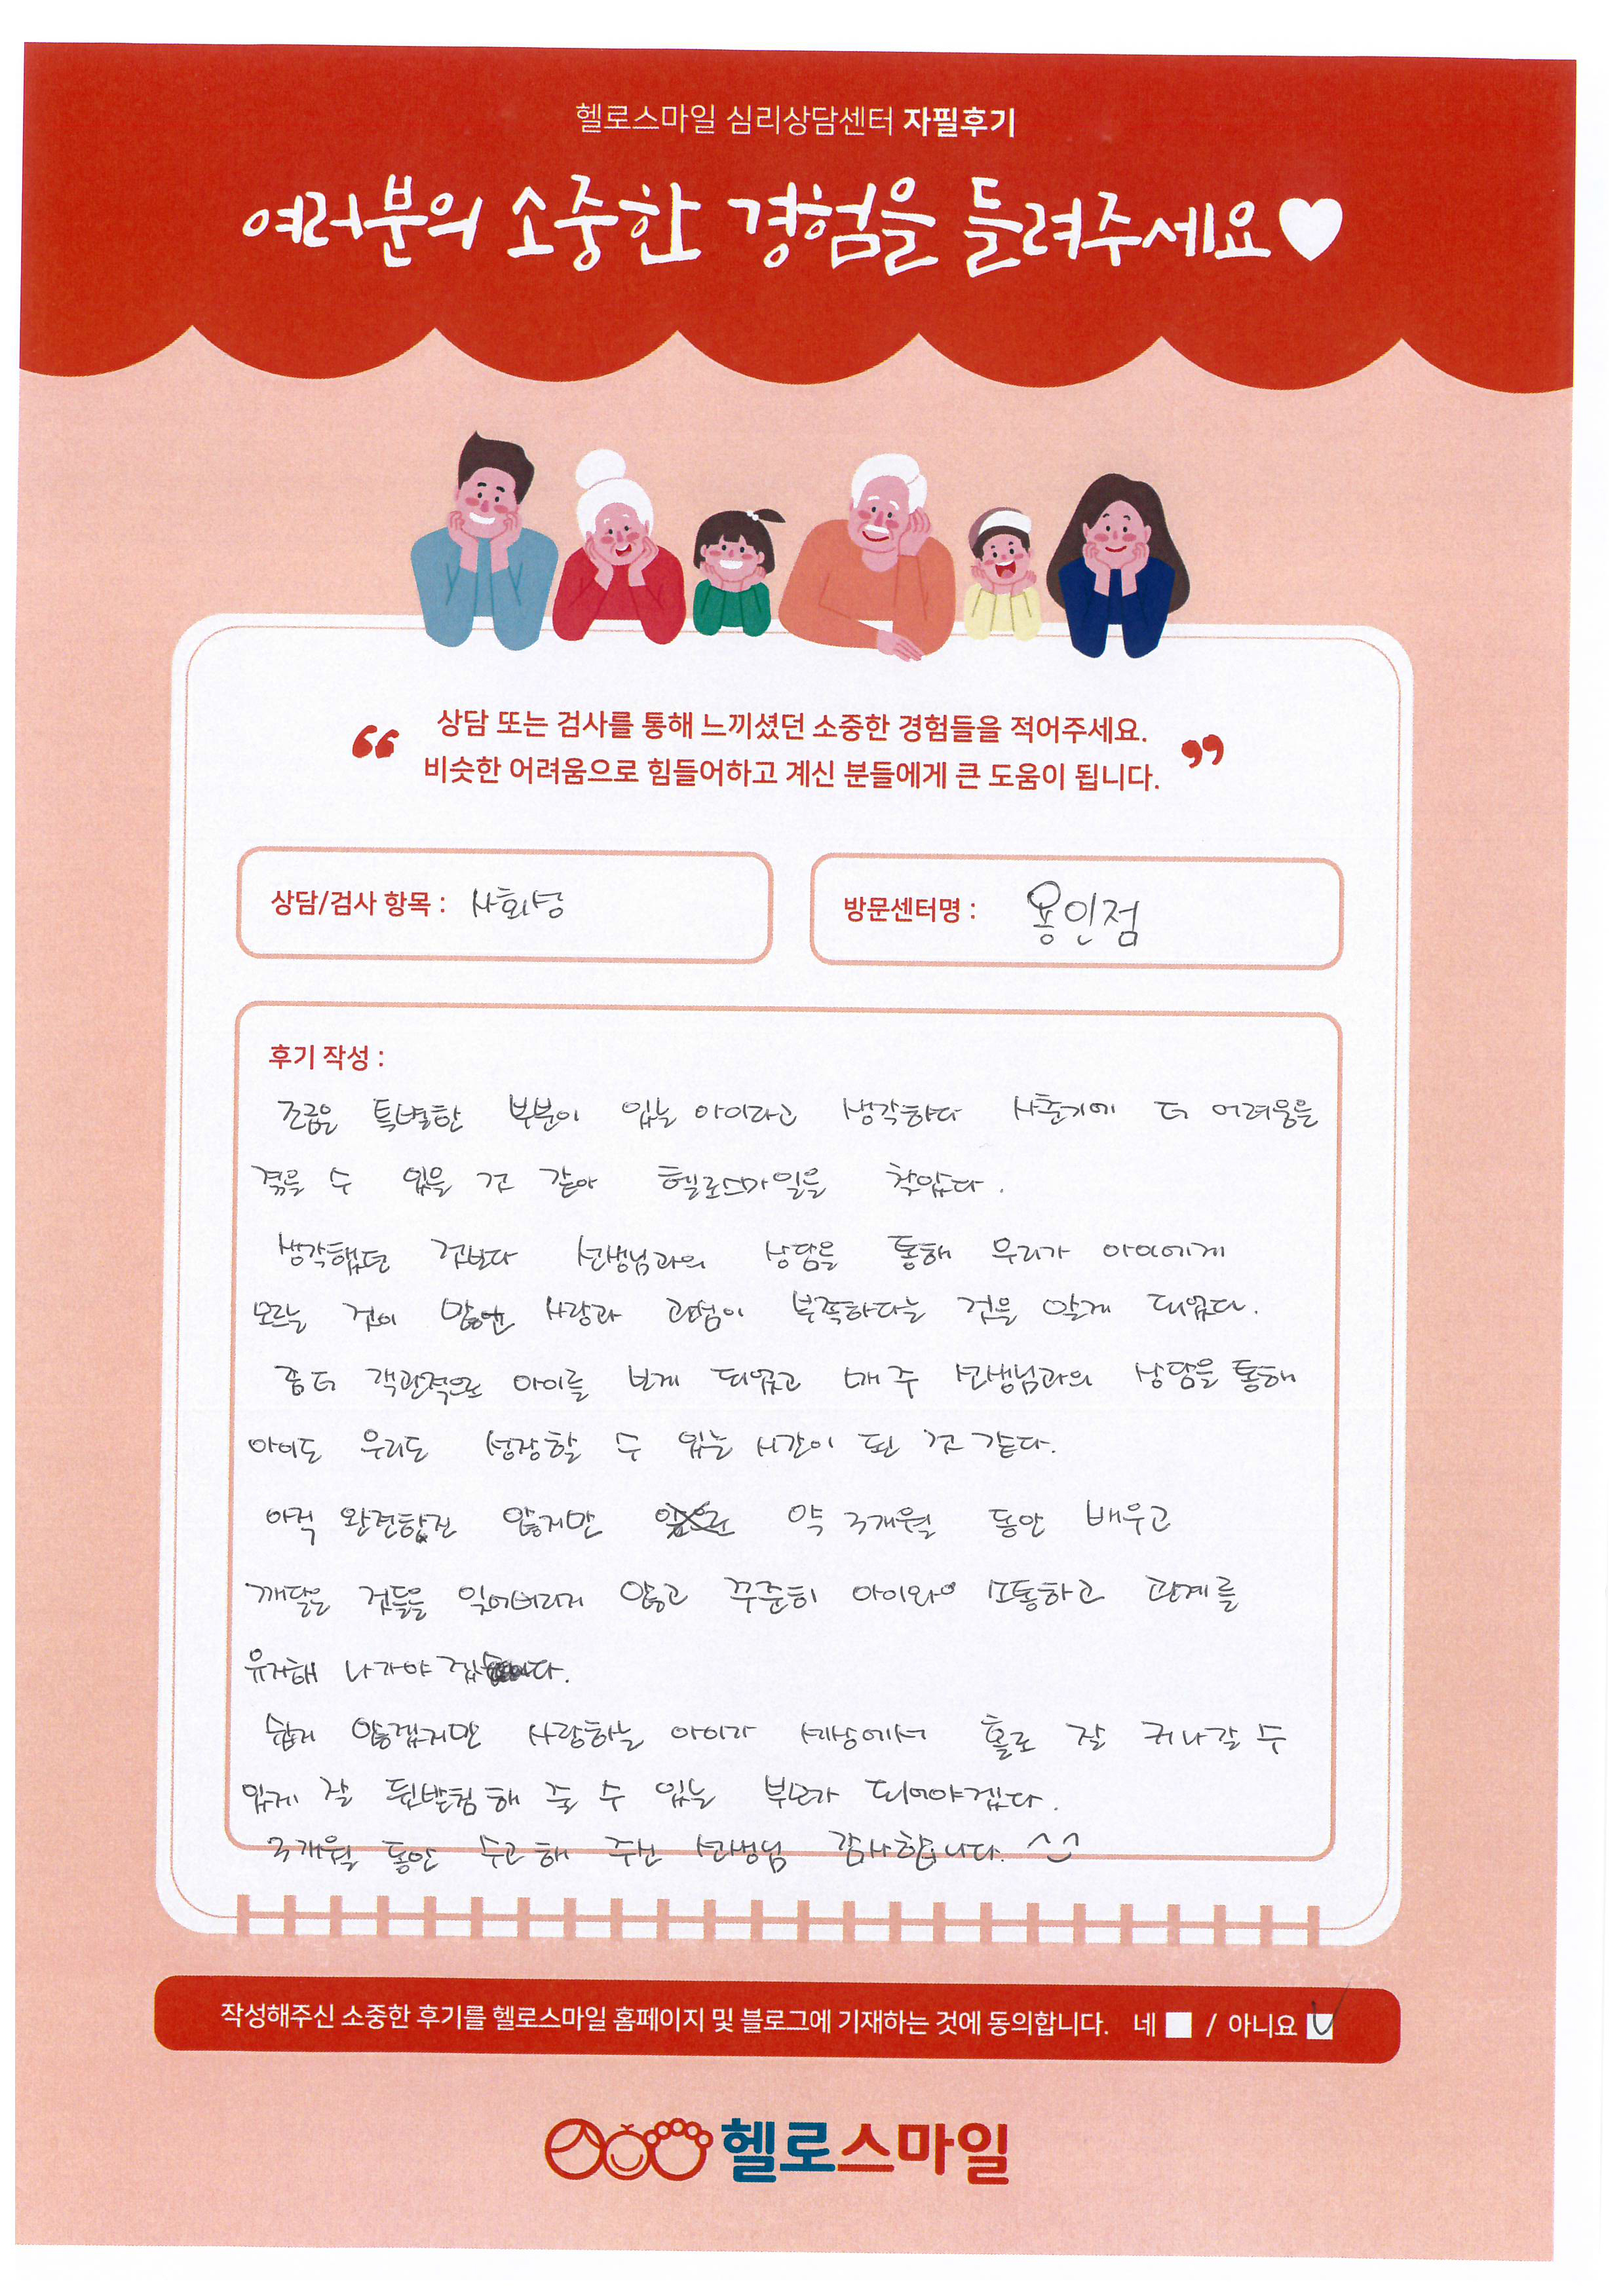 헬로스마일 심리상담센터 자필후기
여러분의 소중한 경험을 들려주세요♥
“ 상담 또는 검사를 통해 느끼셨던 소중한 경험들을 적어주세요.
비슷한 어려움으로 힘들어하고 계신 분들에게 큰 도움이 됩니다. ”
상담/검사 항목 : 사회성
방문센터명 : 용인점
후기 작성 :
조금은 특별한 부분이 있는 아이라고 생각하다 사춘기에 더 어려움을
겪을 수 있을 것 같아 헬로스마일을 찾았다.
생각했던 것보다 선생님과의 상담을 통해 우리가 아이에게
모르는 것이 많았 사랑과 관심이 부족하다는 것을 알게 되었다.
좀더 객관적으로 아이를 보게 되었고 매주 선생님과의 상담을 통해
아이도 우리도 성장할 수 있는 시간이 된 것 같다.
아직 완전합진 않지만 약 3개월 동안 배우고
깨달은 것들을 잊어버리지 않고 꾸준히 아이와 소통하고 관계를
유지해 나가야 겠다.
쉽지 않겠지만 사랑하는 아이가 세상에서 홀로 잘 커나갈 수
있게 잘 뒷받침 해 줄 수 있는 부모가 되어야겠다.
3개월 동안 수고 해 주신 선생님 감사합니다. ^^
작성해주신 소중한 후기를 헬로스마일 홈페이지 및 블로그에 기재하는 것에 동의합니다. 네 / 아니요
헬로스마일